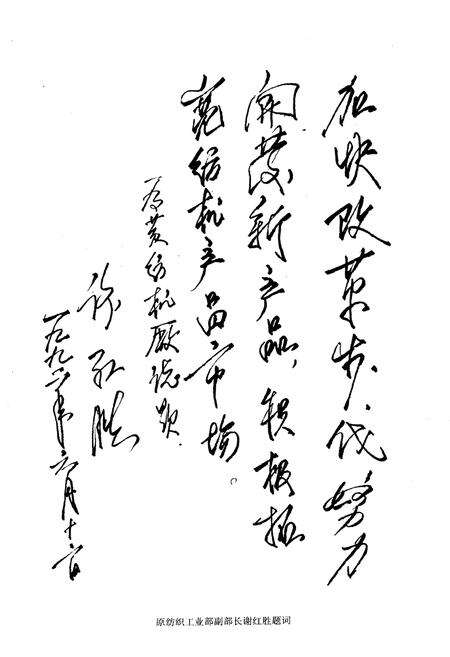 加快改革步伐努力
开发新产品,积极拓
宽纺机产品市场。
为黄纺机厂志题
谢红胜
一九九二年六月十六日
原纺织工业部副部长谢红胜题词